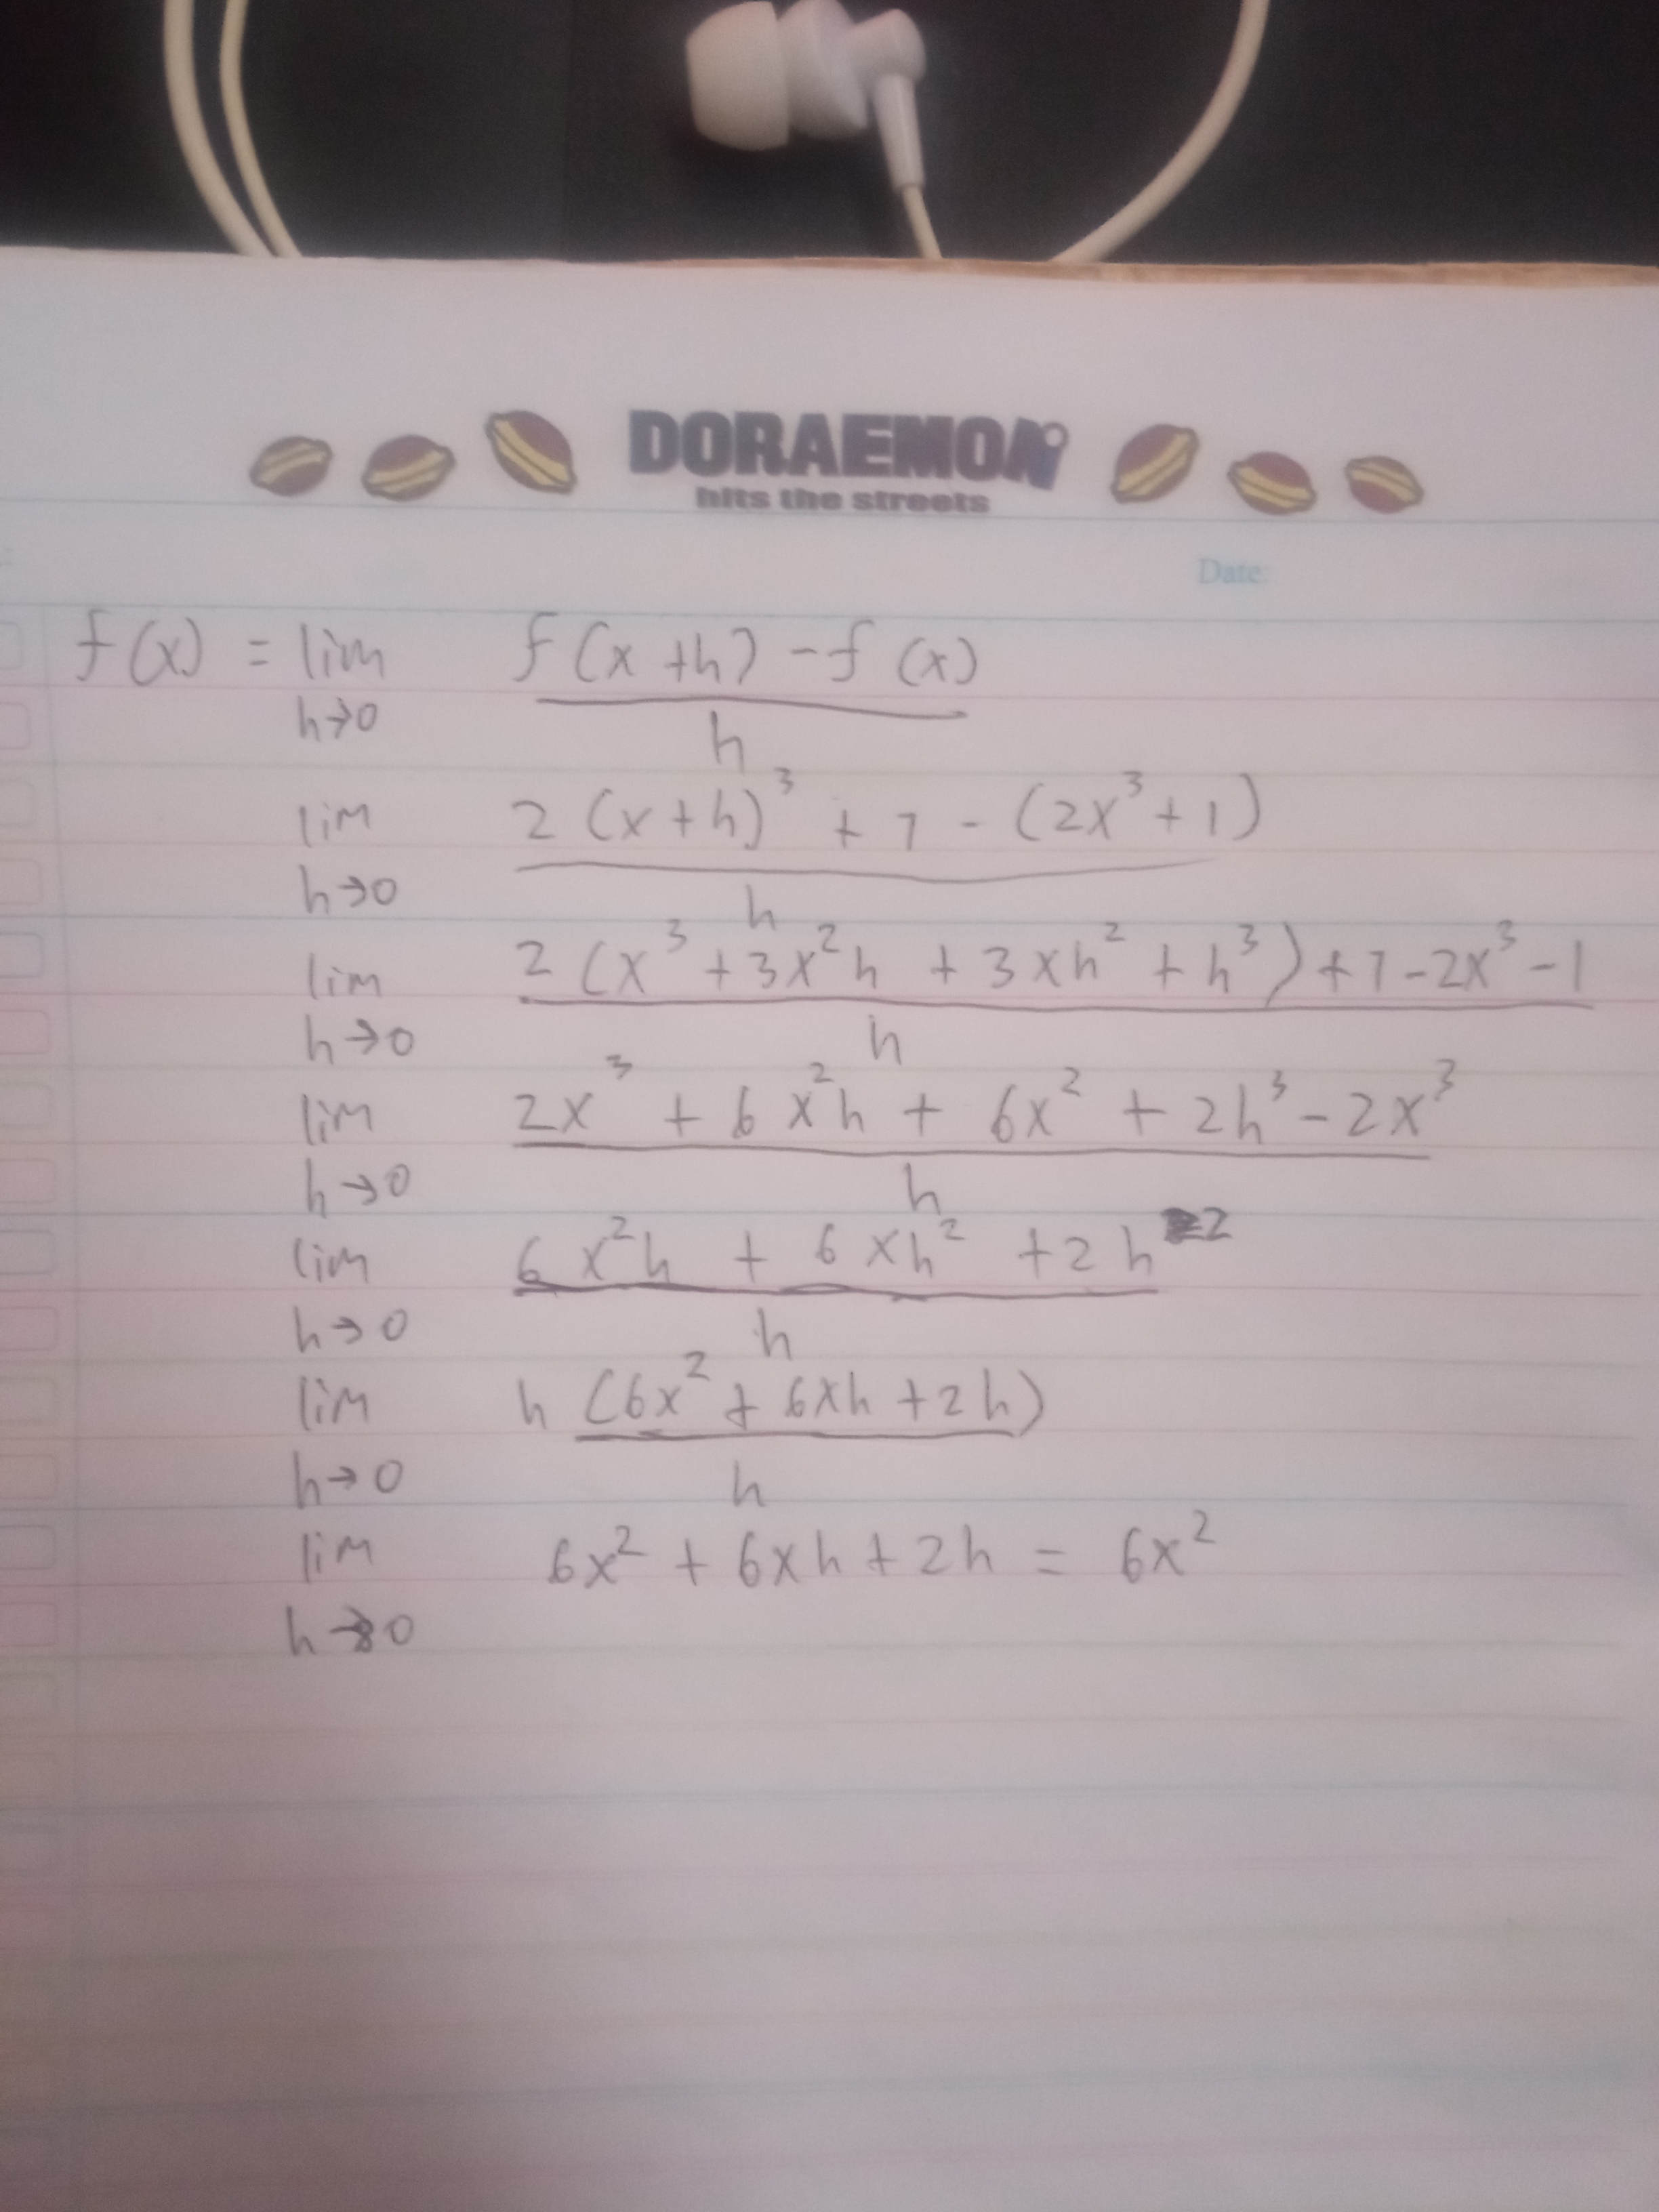 DORAEMON
hits the streets
Date:
f(x) = lim h→0 f(x+h) - f(x) / h
lim h→0 2(x+h)³ + 1 - (2x³+1) / h
lim h→0 2(x³ + 3x²h + 3xh² + h³) + 1 - 2x³ - 1 / h
lim h→0 2x³ + 6x²h + 6x² + 2h³ - 2x³ / h
lim h→0 6x²h + 6xh² + 2h² / h
lim h→0 h(6x² + 6xh + 2h) / h
lim h→0 6x² + 6xh + 2h = 6x²